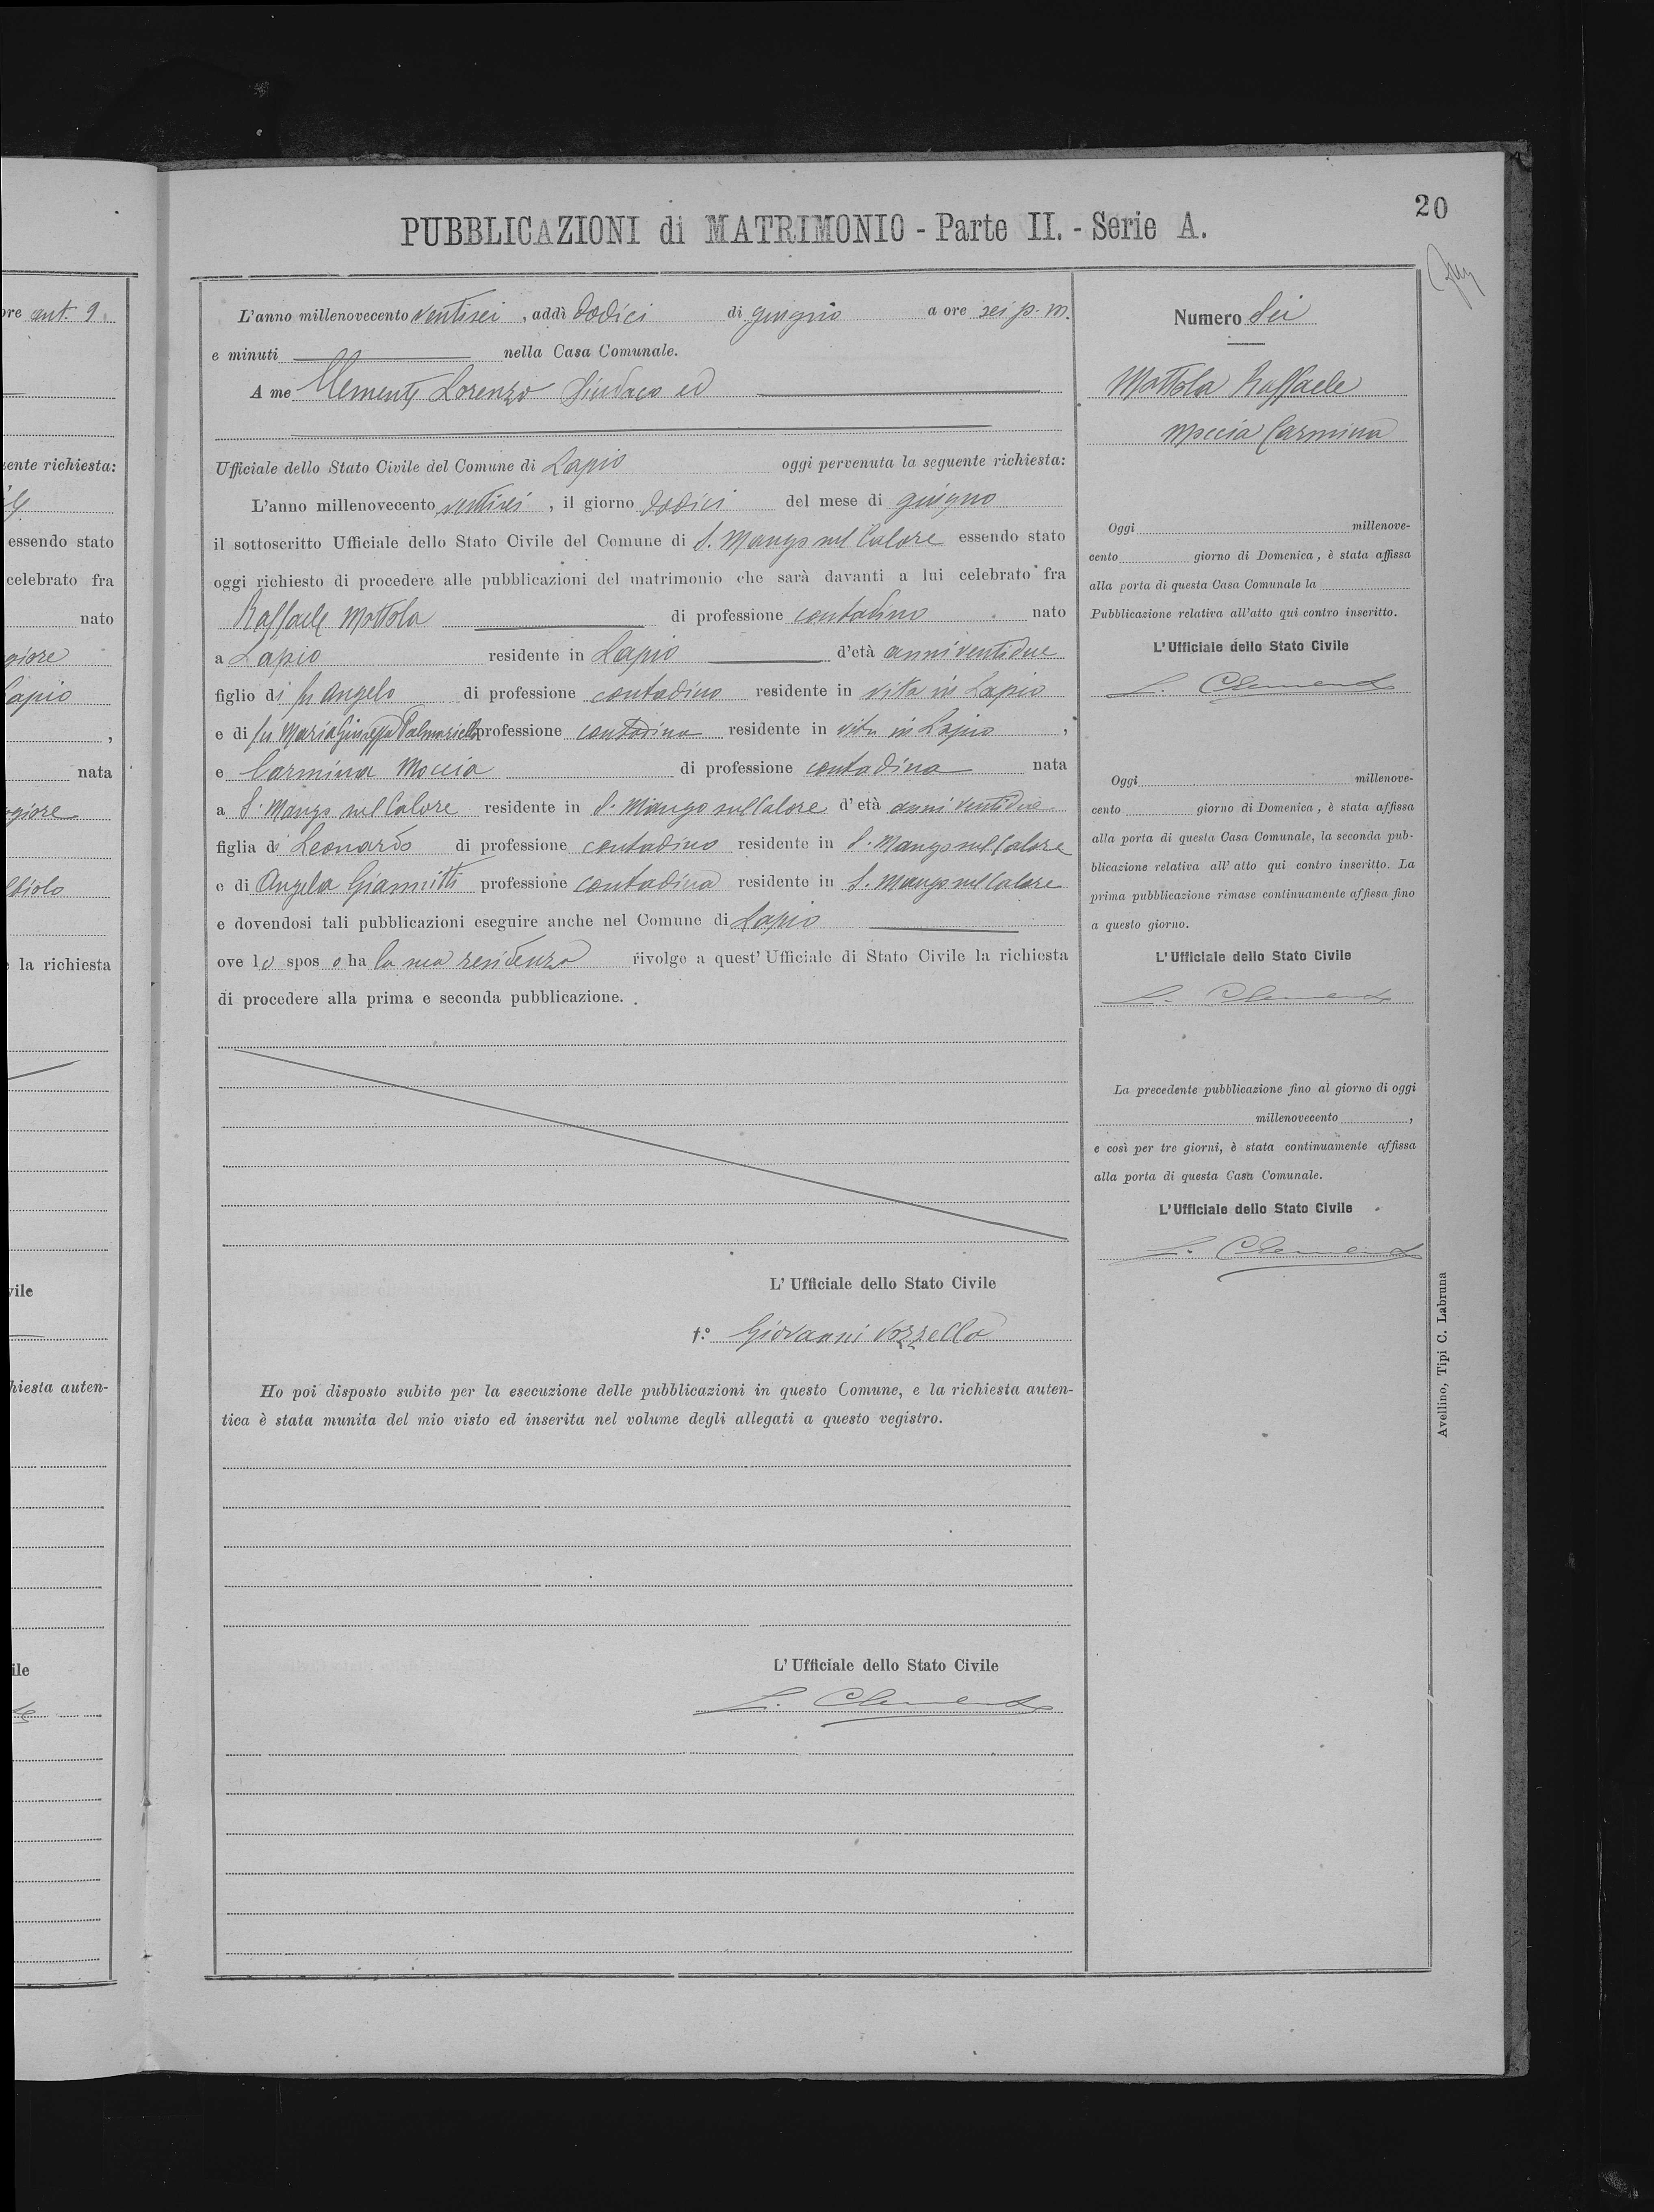 20
PUBBLICAZIONI di MATRIMONIO - Parte II. - Serie A.
ore ant. 9.
ente richiesta:
essendo stato
celebrato fra
nato
giore
Lapio
,
nata
ggiore
la richiesta
vile
hiesta auten-
ile
L'anno millenovecento ventisei , addì dodici di giugno a ore sei p. m.
e minuti nella Casa Comunale.
A me Clemente Lorenzo Sindaco ed
Ufficiale dello Stato Civile del Comune di Lapio oggi pervenuta la seguente richiesta:
L'anno millenovecento ventisei , il giorno dodici del mese di giugno
il sottoscritto Ufficiale dello Stato Civile del Comune di S. Mango sul Calore essendo stato
oggi richiesto di procedere alle pubblicazioni del matrimonio che sarà davanti a lui celebrato fra
Raffaele Mottola di professione contadino nato
a Lapio residente in Lapio d'età anni ventidue
figlio di fu Angelo di professione contadino residente in vita in Lapio
e di fu Maria Giuseppa Palmariello professione contadina residente in vita in Lapio ,
e Carmina Moccia di professione contadina nata
a S. Mango sul Calore residente in S. Mango sul Calore d'età anni ventidue
figlia di Leonardo di professione contadino residente in S. Mango sul Calore
e di Angela Giannitti professione contadina residente in S. Mango sul Calore
e dovendosi tali pubblicazioni eseguire anche nel Comune di Lapio
ove lo spos o ha la sua residenza rivolge a quest' Ufficiale di Stato Civile la richiesta
di procedere alla prima e seconda pubblicazione.
L' Ufficiale dello Stato Civile
f.º Giovanni Vozzella
Ho poi disposto subito per la esecuzione delle pubblicazioni in questo Comune, e la richiesta auten-
tica è stata munita del mio visto ed inserita nel volume degli allegati a questo vegistro.
L' Ufficiale dello Stato Civile
L. Clemente
Numero Sei
Mottola Raffaele
Moccia Carmina
Oggi millenove-
cento giorno di Domenica, è stata affissa
alla porta di questa Casa Comunale la
Pubblicazione relativa all'atto qui contro inscritto.
L'Ufficiale dello Stato Civile
L. Clemente
Oggi millenove-
cento giorno di Domenica, è stata affissa
alla porta di questa Casa Comunale, la seconda pub-
blicazione relativa all' atto qui contro inscritto. La
prima pubblicazione rimase continuamente affissa fino
a questo giorno.
L'Ufficiale dello Stato Civile
L. Clemente
La precedente pubblicazione fino al giorno di oggi
millenovecento ,
e così per tre giorni, è stata continuamente affissa
alla porta di questa Casa Comunale.
L'Ufficiale dello Stato Civile
L. Clemente
Avellino, Tipi C. Labruna